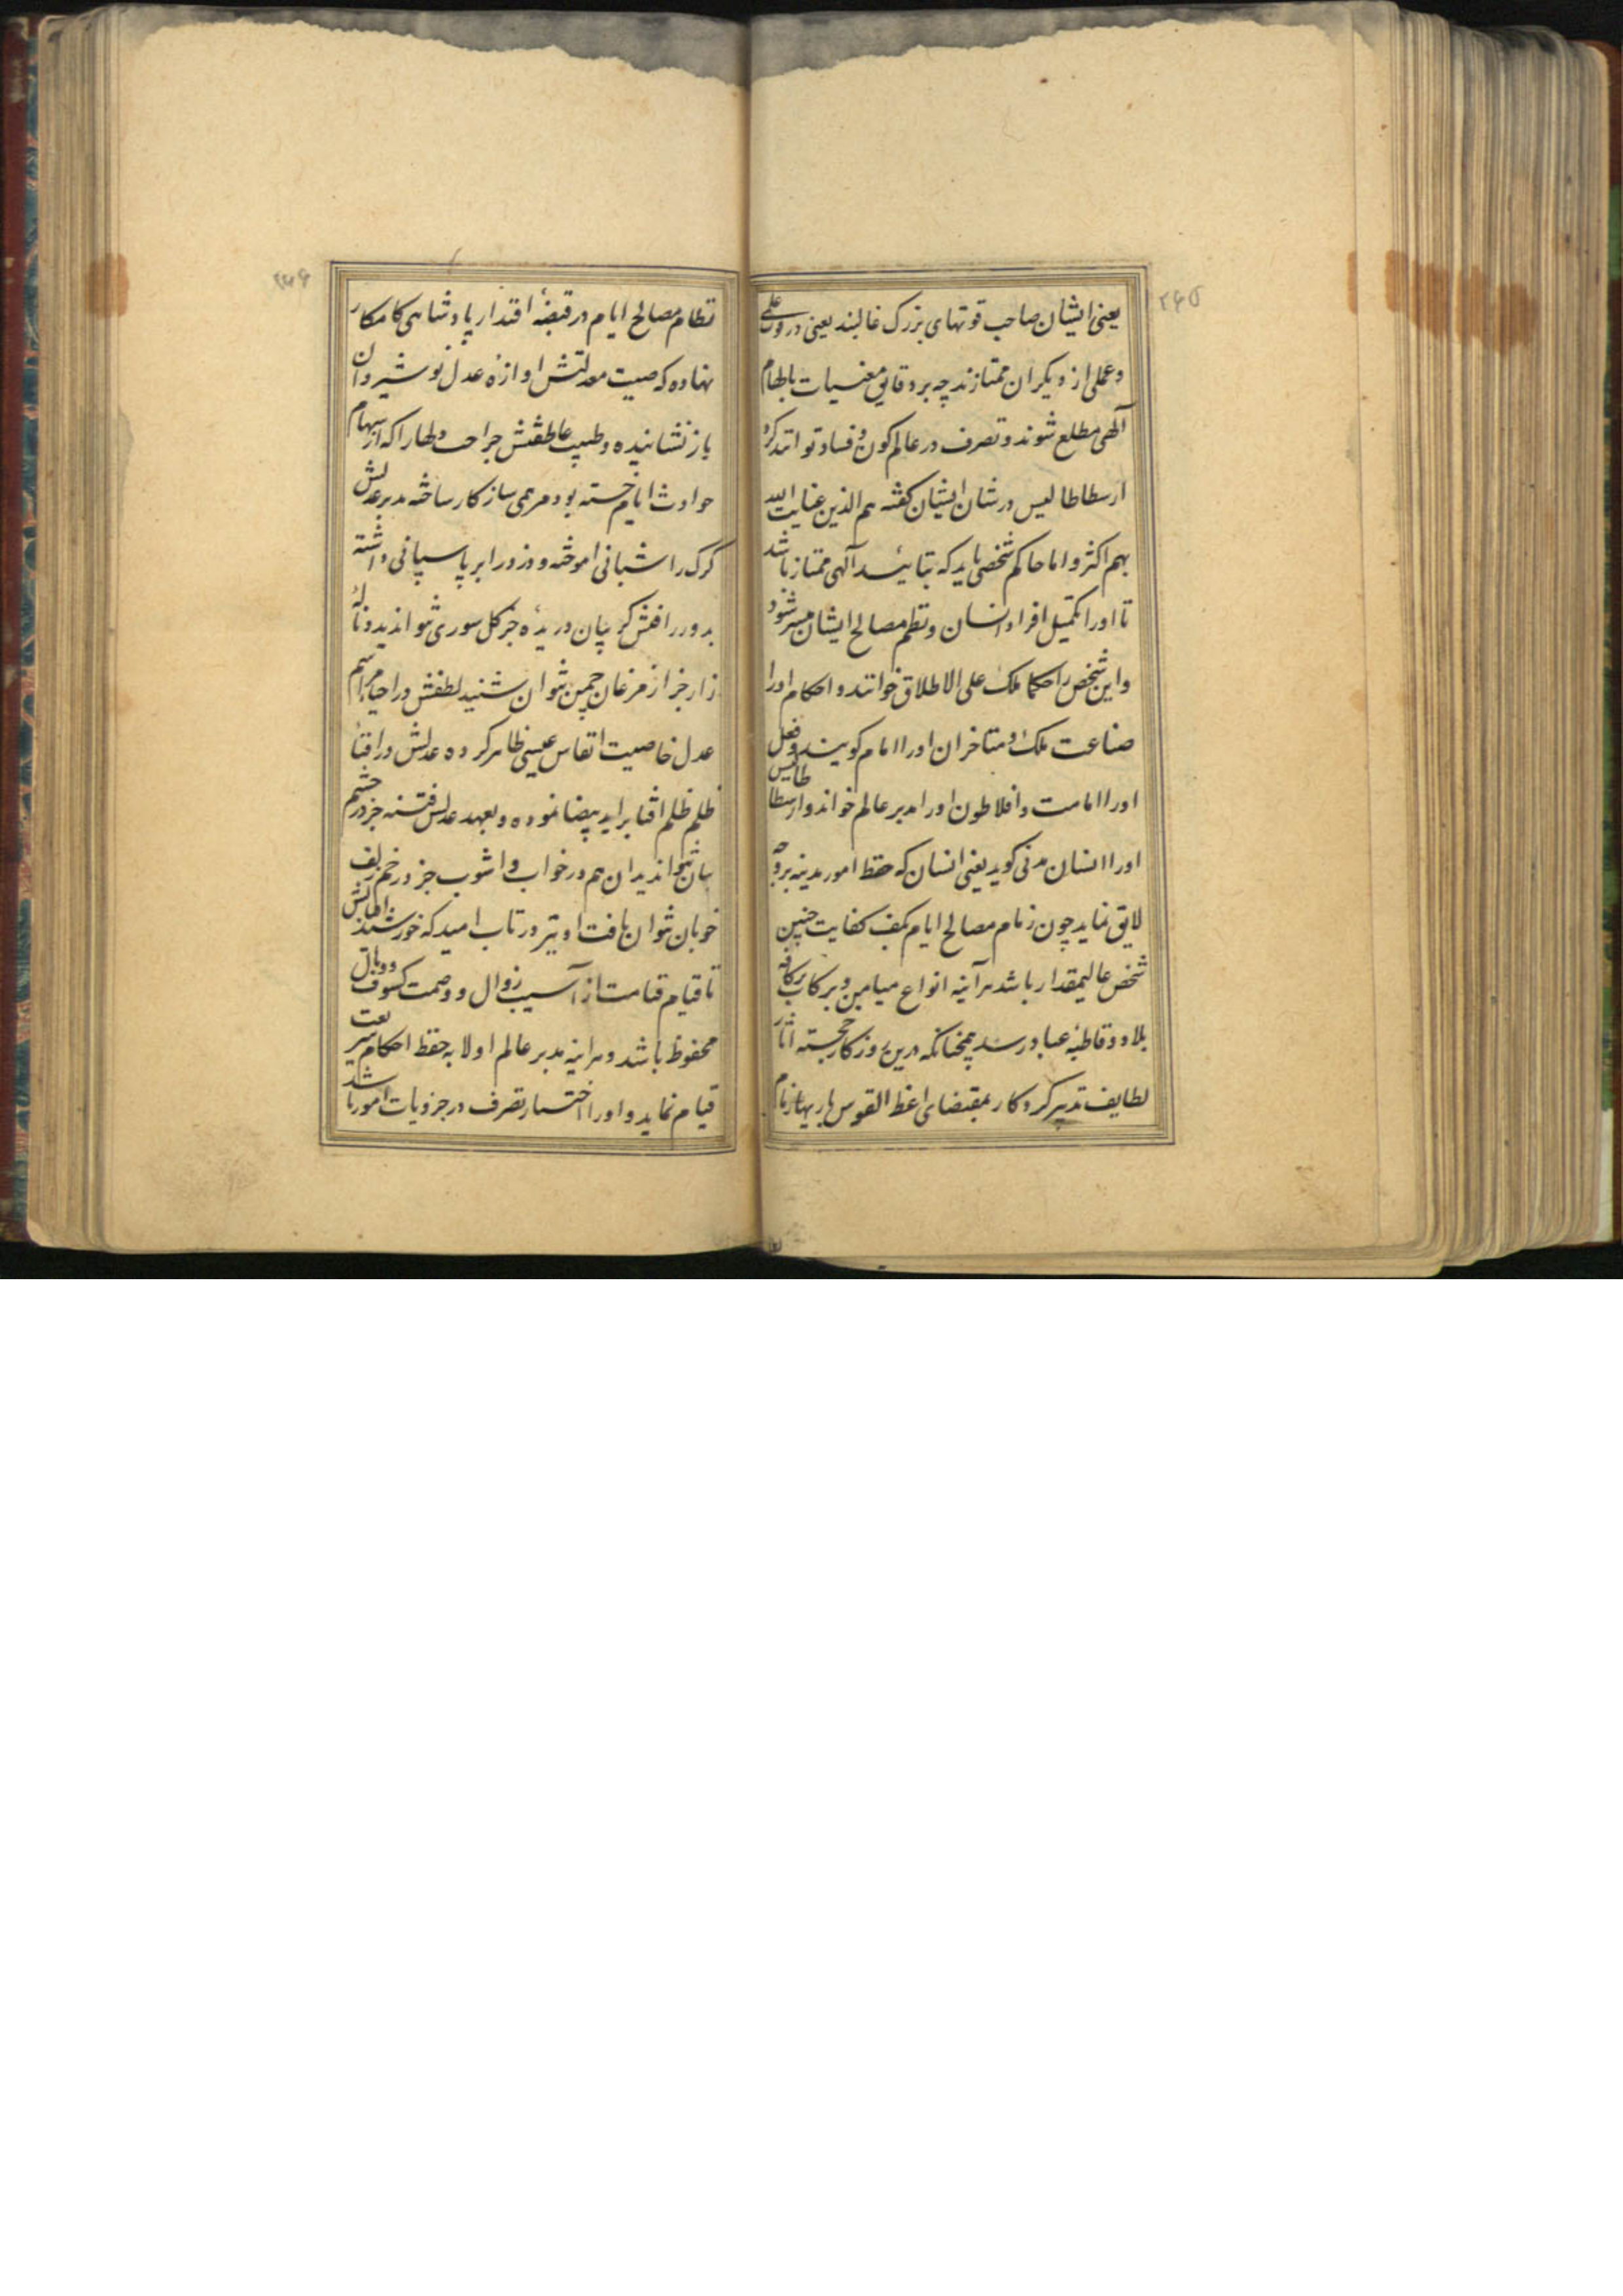 ۲۶۵
یعنی ایشان صاحب قوتهای بزرک غالبند یعنی در قوت علمی
و عملی از دیکران ممتازند چه بر دقایق مغیبات بالهام
آلهی مطلع شوند و تصرف در عالم کون و فساد توانند کرد
ارسطاطالیس در شان ایشان کفته هم الذین عنایت الله
بهم اکثر و اما حاکم شخصی باید که بتائید آلهی ممتاز باشد
تا او را تکمیل افراد انسان و نظم مصالح ایشان میسر شود
و این شخص را حکما ملک علی الاطلاق خوانند و احکام او را
صناعت ملک و متاخران او را امام کویند و فعل
او را امامت و افلاطون او را مدبر عالم خواند و ارسطاطالیس
او را انسان مدنی کوید یعنی انسان که حفظ امور مدینه بروجه
لایق نماید چون زمام مصالح ایام بکف کفایت چنین
شخص عالیمقدار باشد هر آینه انواع میامین و برکات بر کافه
بلاد و قاطبه عباد رسد همچنانکه درین روزکار خجسته اثار
لطایف تدبیر کردکار بمقتضای اعط القوس باریها زمام
۲۶۶
نظام مصالح ایام در قبضهٔ اقتدار پادشاهی کامکار
نهاده که صیت معدلتش اوازه عدل نوشیروان
باز نشانیده و طبیب عاطفتش جراحت دلها را که از سهام
حوادث ایام خسته بود مرهمی سازکار ساخته مدبر عدلش
کرک را شبانی اموخته و دزد را بر پاسبانی داشته
بدور رافتش کریبان دریده جز کل سوری نتواند دید و نالهٔ
زار جز از مرغان چمن نتوان شنید لطفش در احیاء مراسم
عدل خاصیت انفاس عیسی ظاهر کرده عدلش در افناء
ظلم ظلم اثار ید بیضا نموده و بعهد عدلش فتنه جز در چشم
بتان نتواند دید ان هم در خواب و اشوب جز در خم زلف
خوبان نتوان یافت او نیز در تاب امید که خورشید اقبالش
تا قیام قیامت از آسیب زوال و وصمت کسوف و وبال
محفوظ باشد و هراینه مدبر عالم اولا به حفظ احکام شریعت
قیام نماید و او را اختیار تصرف در جزویات امور باشد